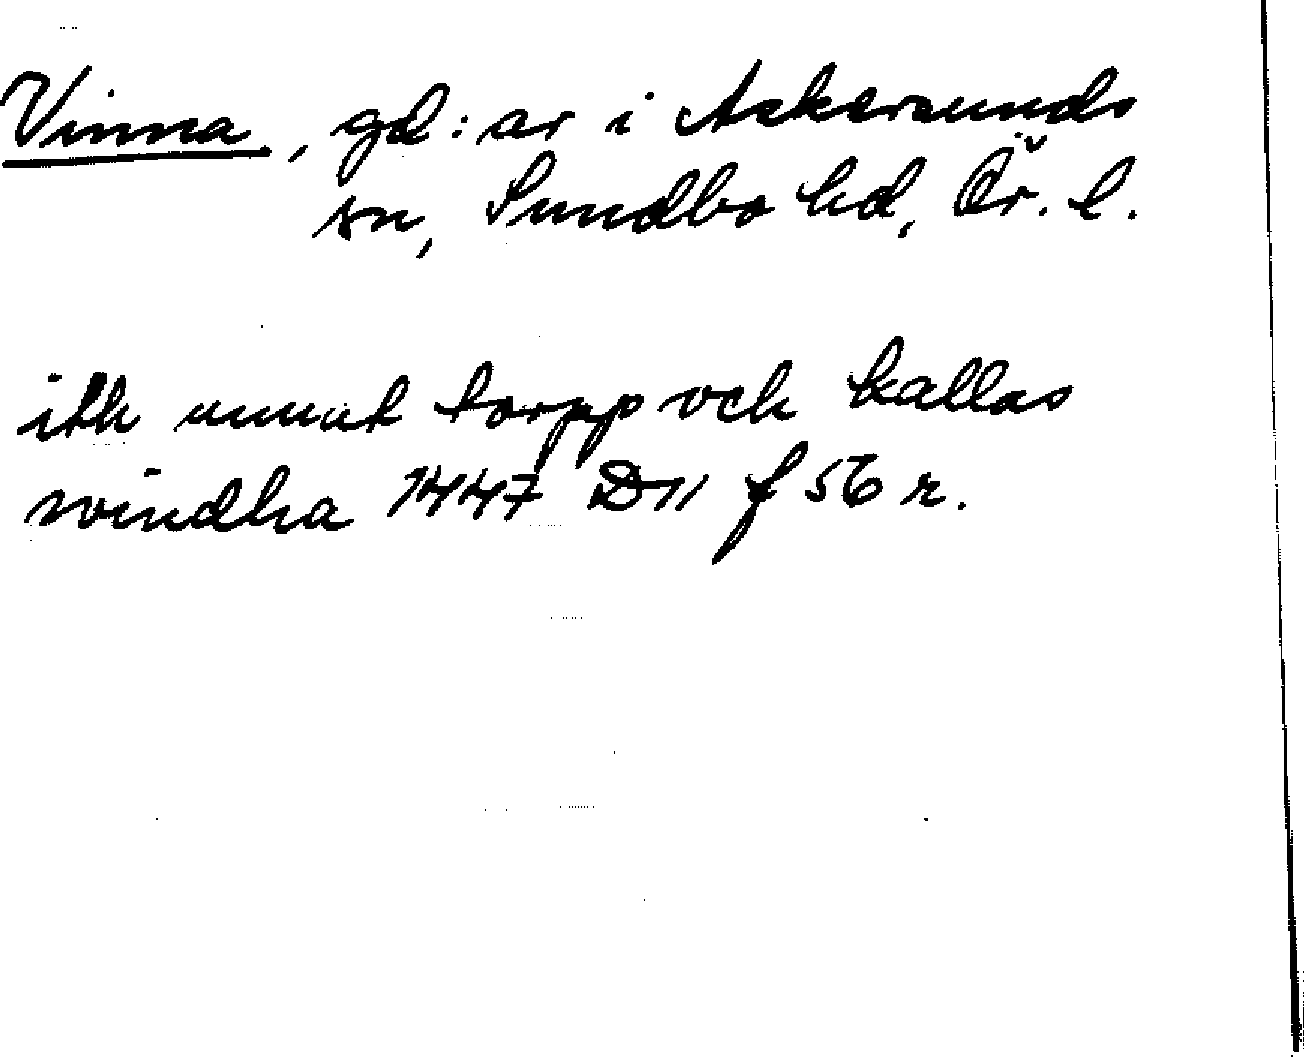 Vinna, gd:ar i Askersunds
sn, Sundbo hd, Ör. l.
ith annat torpp och kallas
windha 1447 D11 f 56 r.